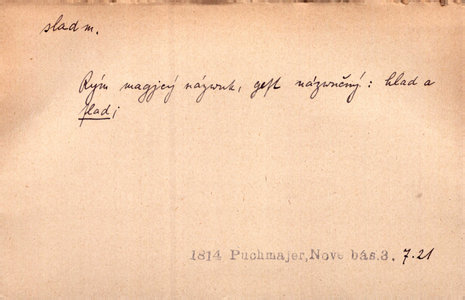 slad m.
Rým magjcý názwuk, gest názwučný: hlad a
slad;
1814 Puchmajer, Nové bás.3. 7.21